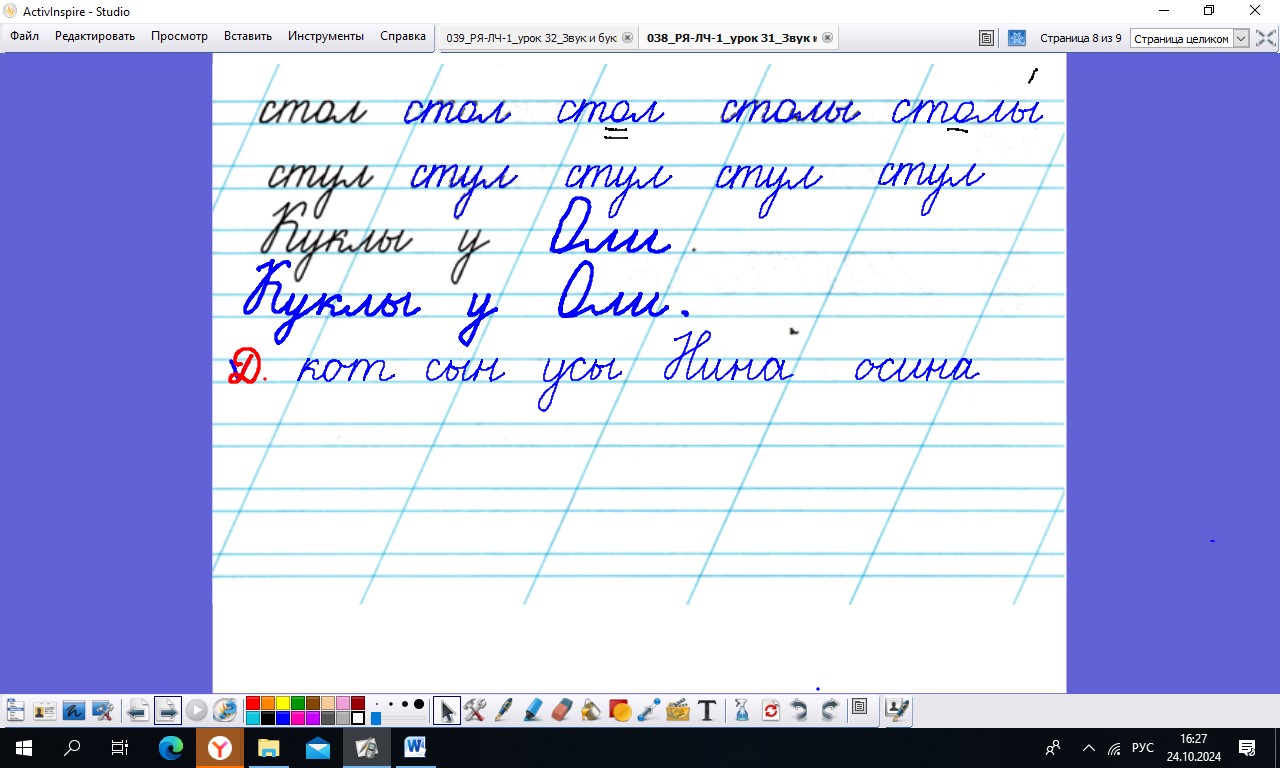 ActivInspire - Studio
Файл Редактировать Просмотр Вставить Инструменты Справка
039_РЯ-ЛЧ-1_урок 32_Звук и бук 038_РЯ-ЛЧ-1_урок 31_Звук и Страница 8 из 9 Страница целиком
стол стол стол столы столы
стул стул стул стул стул
Куклы у Оли.
Куклы у Оли.
Д. кот сын усы Нина осина
РУС
16:27
24.10.2024